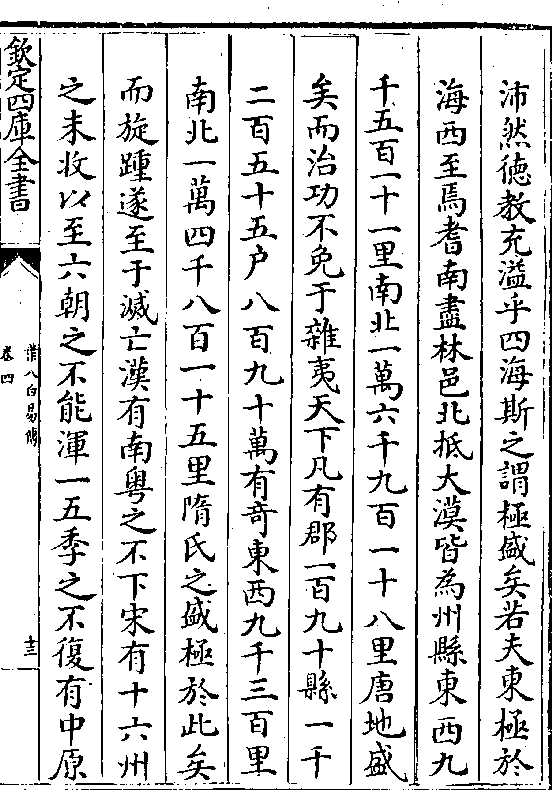 沛然徳教充溢乎四海斯之謂極盛矣若夫東極於
海西至焉耆南盡林邑北抵大漠皆為州縣東西九
千五百一十一里南北一萬六千九百一十八里唐地盛
矣而治功不免于雜夷天下凡有郡一百九十縣一千
二百五十五户八百九十萬有竒東西九千三百里
南北一萬四千八百一十五里隋氏之盛極於此矣
而旋踵遂至于滅亡漢有南粤之不下宋有十六州
之未收以至六朝之不能渾一五季之不復有中原
欽定四庫全書
葉八白易傳
卷四
十三